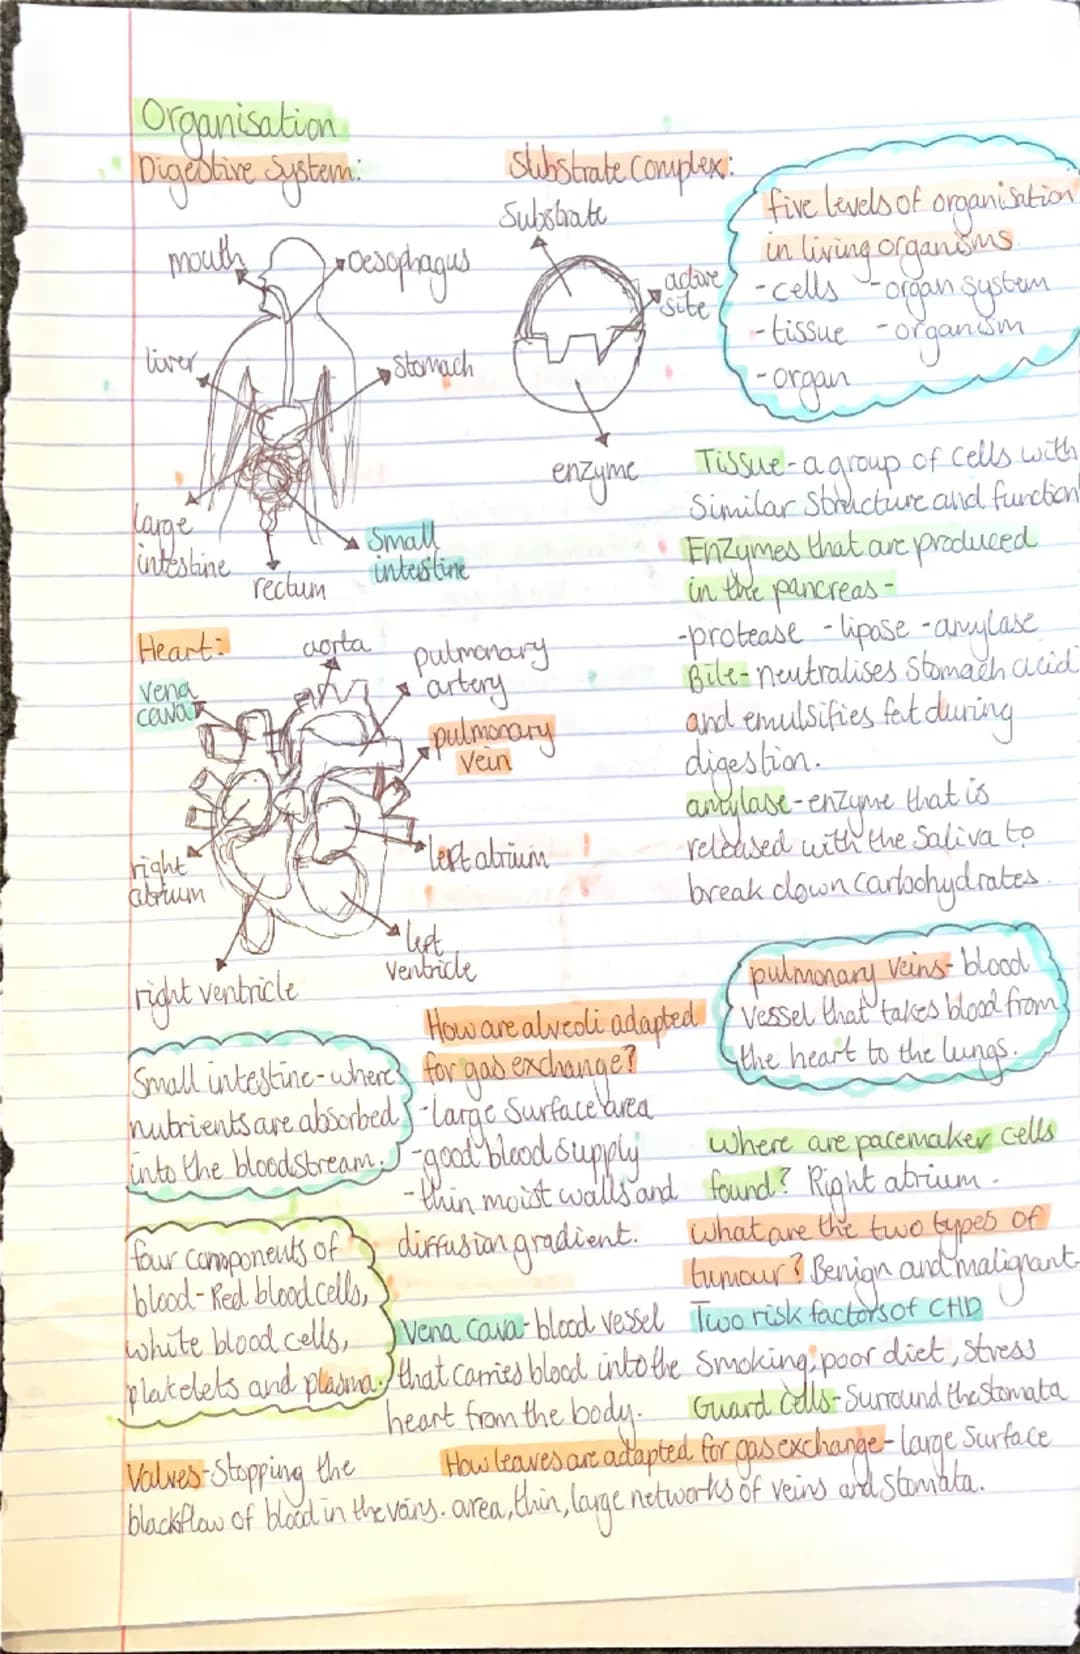 Organisation
Digestive System:
mouth
oesophagus
liver
stomach
large
intestine
rectum
Small
intestine
Substrate Complex:
Substrate
active
site
enzyme
five levels of organisation
in living organisms
-cells -organ system
-tissue -organism
-organ
Tissue - a group of cells with
Similar Structure and function
Enzymes that are produced
in the pancreas -
-protease -lipase -amylase
Bile- neutralises Stomach acid
and emulsifies fat during
digestion.
amylase - enzyme that is
released with the Saliva to
break down carbohydrates.
Heart:
aorta
pulmonary
artery
vena
cava
pulmonary
vein
right
atrium
left atrium
left
ventricle
right ventricle
pulmonary veins- blood
vessel that takes blood from
the heart to the lungs.
Small intestine - where
nutrients are absorbed
into the bloodstream.
How are alveoli adapted
for gas exchange?
-large Surface area
-good blood supply
-thin moist walls and
diffusion gradient.
where are pacemaker cells
found? Right atrium.
what are the two types of
tumour? Benign and malignant
four components of
blood - Red blood cells,
white blood cells,
platelets and plasma.
Vena Cava - blood vessel
that carries blood into the
heart from the body.
Two risk factors of CHD
Smoking, poor diet, stress
Guard Cells - Surround the Stomata
Valves - Stopping the
backflow of blood in the veins.
How leaves are adapted for gas exchange - large Surface
area, thin, large networks of veins and Stomata.